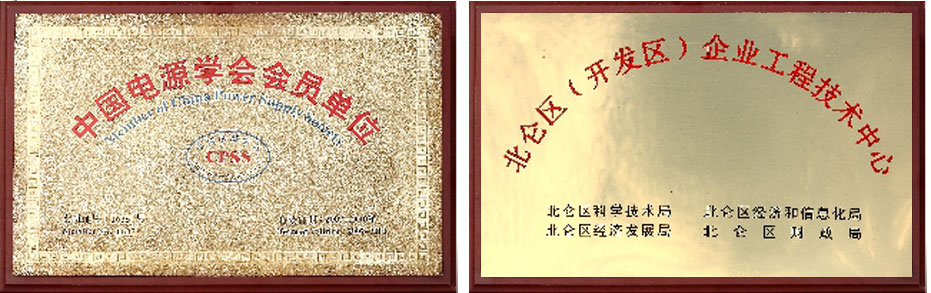 中国电源学会会员单位
Member of China Power Supply Society
CPSS
北仑区(开发区)企业工程技术中心
北仑区科学技术局 北仑区经济和信息化局
北仑区经济发展局 北仑区财政局